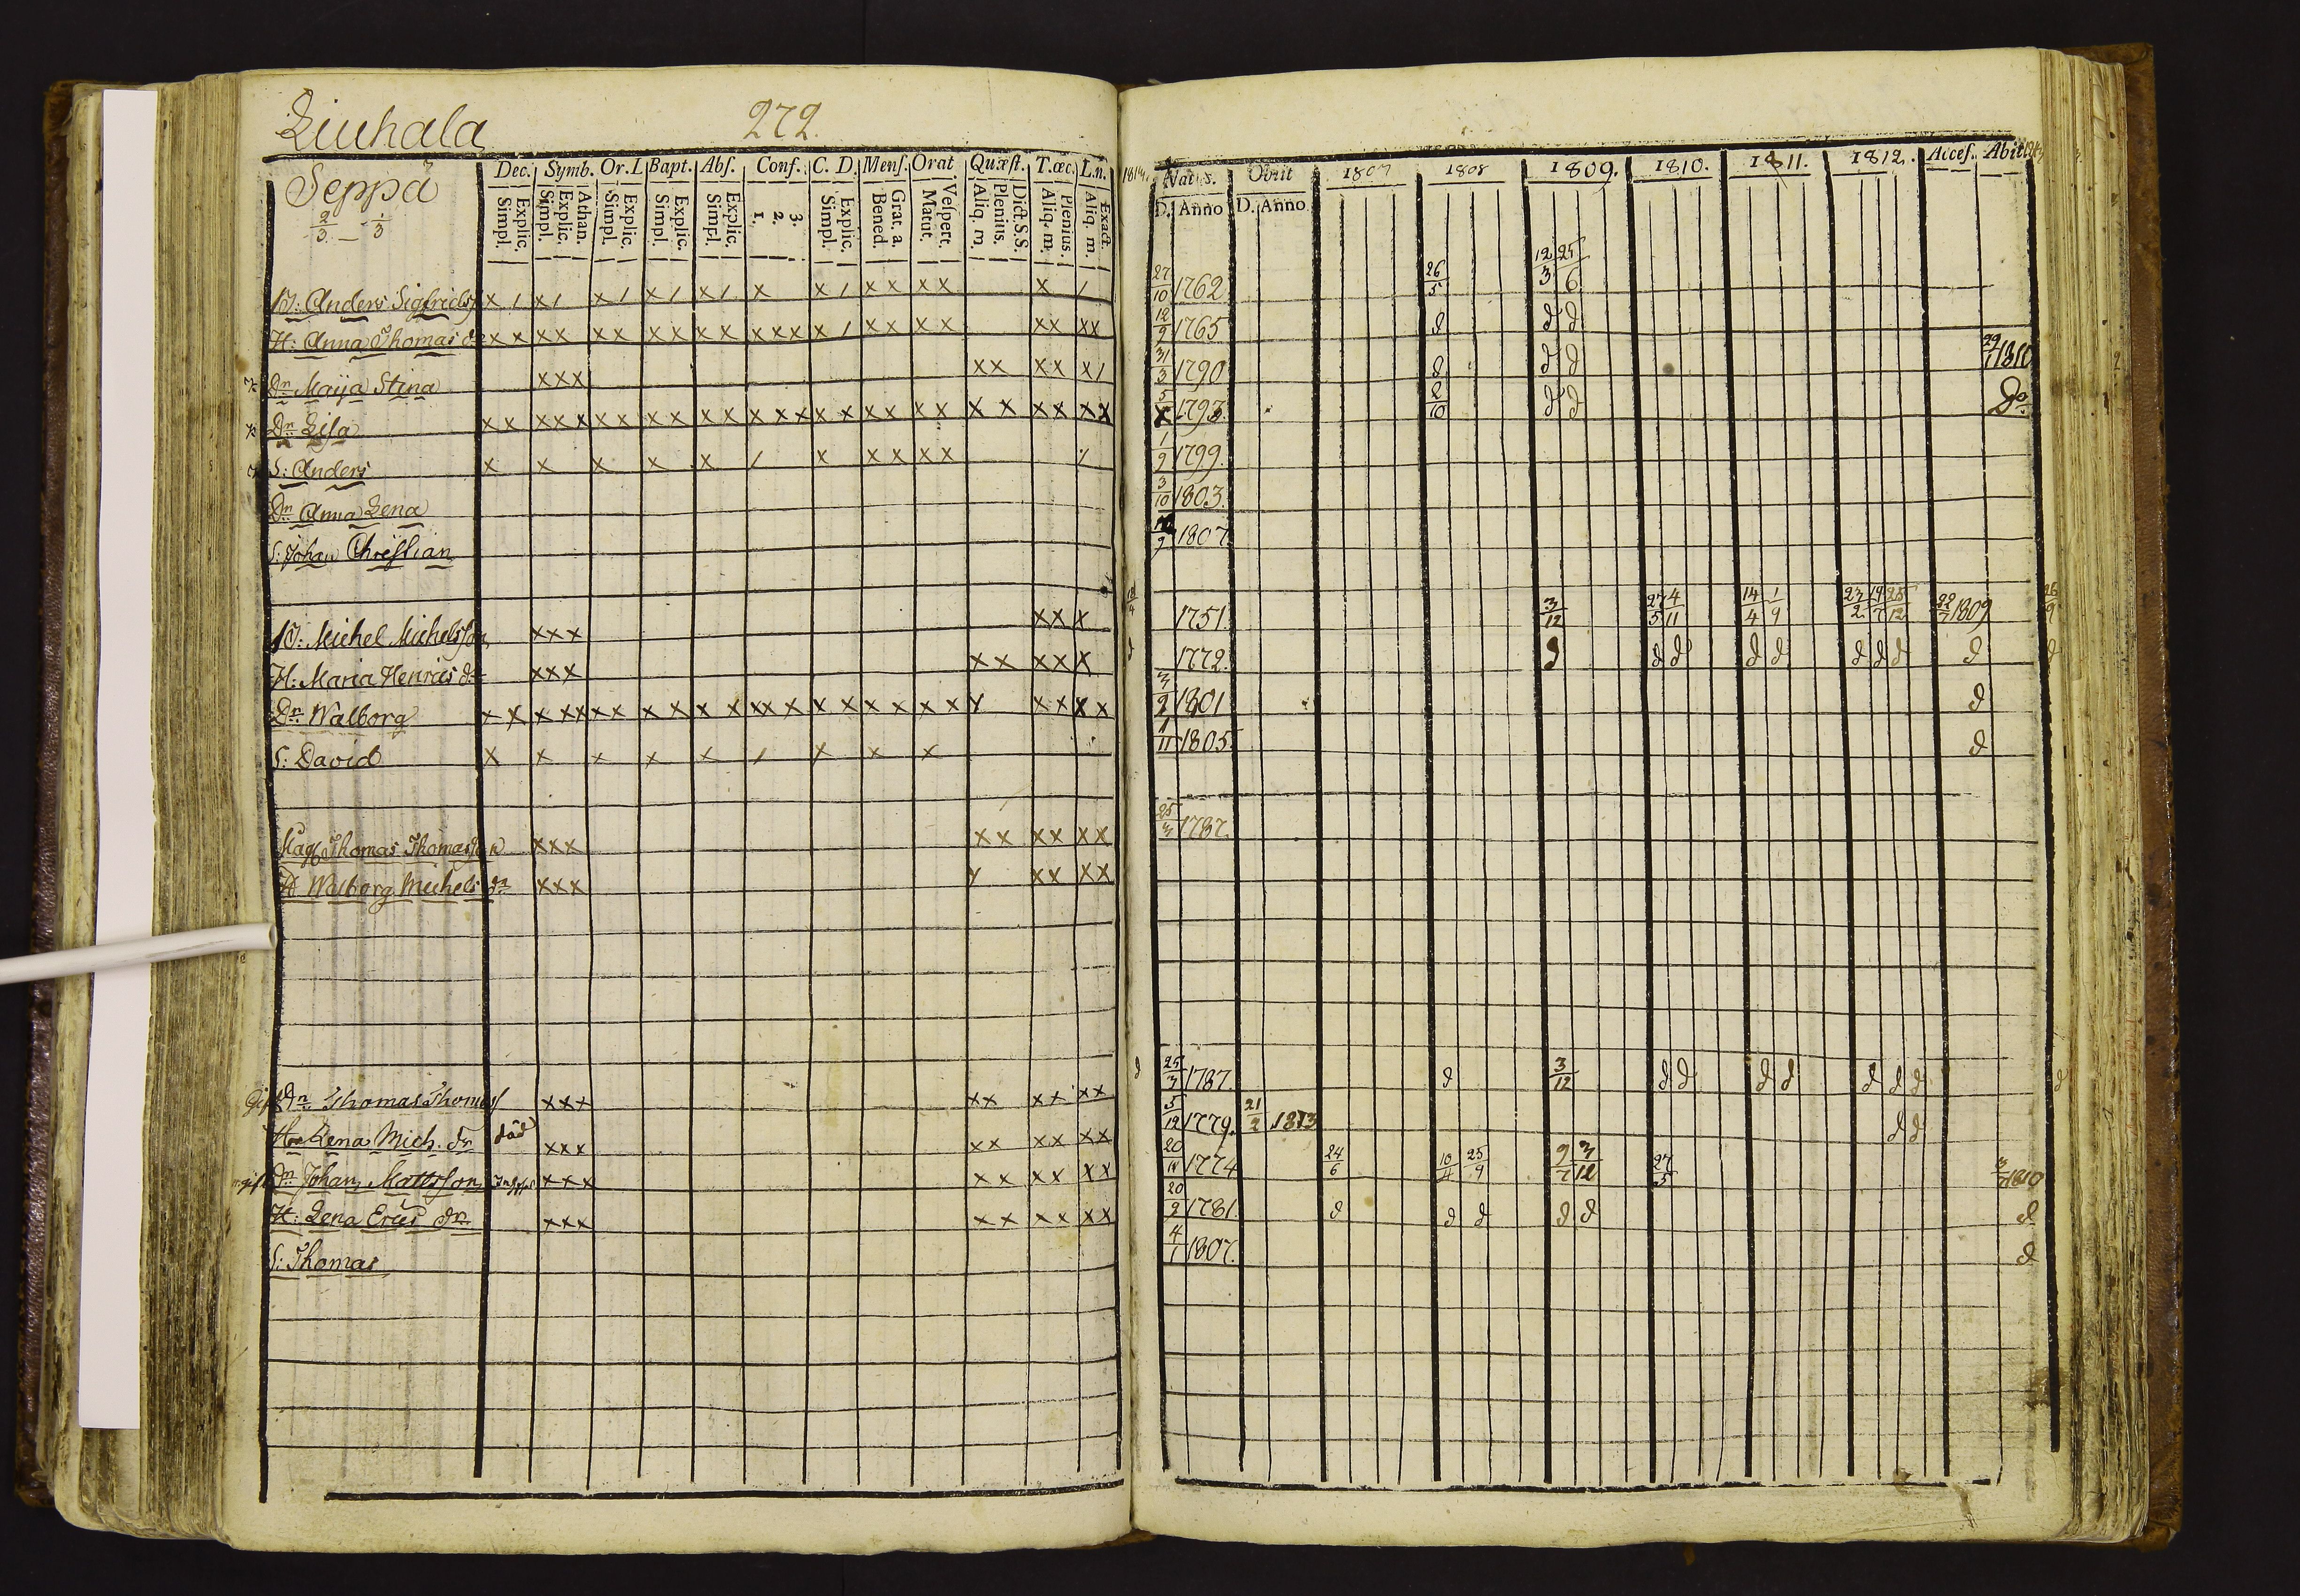 Liuhala 272.
Seppä
2/3 — 1/3
Dec. Symb. Or. L Bapt. Abs. Conf. C. D. Mens. Orat Quæst. T. œc. L.n.
Explic. Simpl. Athan. Explic. Simpl. Explic. Simpl. Explic. Simpl. Explic. Simpl. 3. 2. 1. Explic. Simpl. Grat. a. Bened. Vespert. Matut. Dict. S.S. Plenius. Aliq. m. Plenius. Aliq. m. Exact. Aliq. m.
B: Anders Sigfrids x / x / x / x / x / x x / x x x x x /
H: Anna Thomas dr x x x x x x x x x x x x x x / x x x x x x x x
Dr Maija Stina x x x x x x x x /
Dr Lisa x x x x x x x x x x x x x x x x x x x x x x x x x x
S: Anders x x x x x / x x x x x /
Dr Anna Lena
S: Johan Christian
B: Michel Michelsson x x x x x x
H: Maria Henrics dr x x x x x x x x
Dr Walborg x x x x x x x x x x x x x x x x x x x x y x x x x
S: David x x x x x / x x x
Thomas Thomasson x x x x x x x x x
H Walborg Michels dr x x x y x x x x
Gift Dn Thomas Thomass x x x x x x x x x
Hu Lena Mich. dr död x x x x x x x x x
gift Dn Johan Mattsson x x x x x x x x x
H: Lena Erics dr x x x x x x x x x
S: Thomas
1814 Natus. Obiit 1807 1808 1809. 1810. 1811. 1812. Acces. Abiit
D. Anno D. Anno
27/10 1762 26/5 12/3 25/6
12/9 1765 d d d
31/3 1790 d d d 29/1 1810
5/ 1793 2/10 d d Do
1/9 1799.
3/10 1803.
/9 1807
1751 3/12 27/5 4/11 14/4 1/9 23/2 19/7 28/12 22/7 1809 26/9
d 1772. d d d d d d d d d d
3/2 1801 d
1/11 1805. d
25/3 1787.
d 25/3 1787 d 3/12 d d d d d d d d
5/12 1779. 21/2 1813 d d
20/11 1774 24/6 10/4 25/9 9/7 3/12 27/5 3/7 1810
20/2 1781. d d d d d d
4/1 1807. d